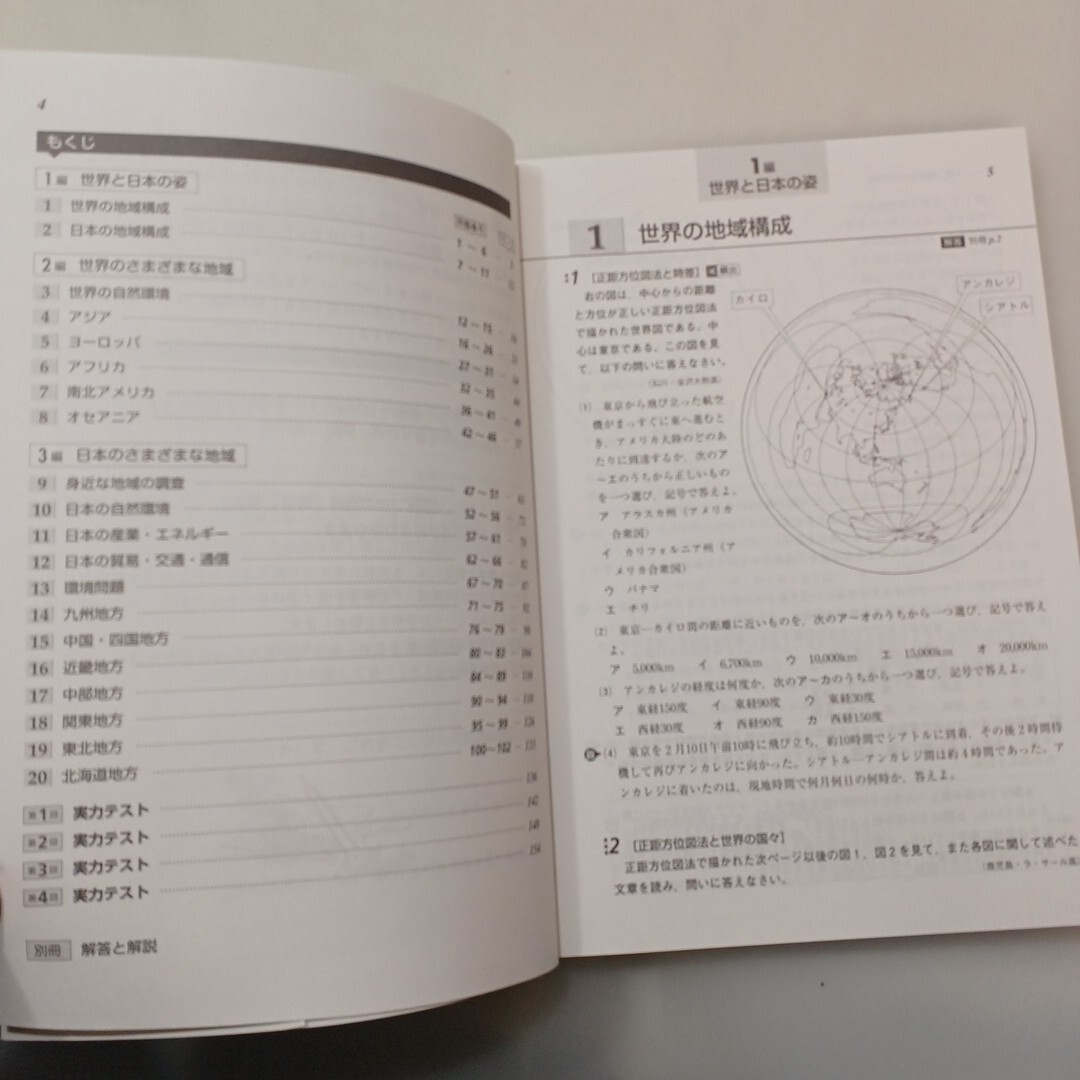 4
もくじ
1編 世界と日本の姿
1 世界の地域構成 1〜6
2 日本の地域構成 7〜11
2編 世界のさまざまな地域
3 世界の自然環境 12〜15
4 アジア 16〜26
5 ヨーロッパ 27〜31
6 アフリカ 32〜35
7 南北アメリカ 36〜41
8 オセアニア 42〜46
3編 日本のさまざまな地域
9 身近な地域の調査 47〜51
10 日本の自然環境 52〜56
11 日本の産業・エネルギー 57〜61
12 日本の貿易・交通・通信 62〜66
13 環境問題 67〜70
14 九州地方 71〜75
15 中国・四国地方 76〜79
16 近畿地方 80〜83
17 中部地方 84〜89
18 関東地方 90〜94
19 東北地方 95〜99
20 北海道地方 100〜102
第1回 実力テスト 136
第2回 実力テスト 142
第3回 実力テスト 148
第4回 実力テスト 154
別冊 解答と解説
5
1編
世界と日本の姿
1 世界の地域構成
解答 別冊p.2
1 [正距方位図法と時差] 頻出
右の図は，中心からの距離
と方位が正しい正距方位図法
で描かれた世界図である。中
心は東京である。この図を見
て，以下の問いに答えなさい。
(石川・金沢大附高)
(1) 東京から飛び立った航空
機がまっすぐに東へ進むと
き，アメリカ大陸のどのあ
たりに到達するか，次のア
〜エのうちから正しいもの
を一つ選び，記号で答えよ。
ア アラスカ州（アメリカ
合衆国）
イ カリフォルニア州（ア
メリカ合衆国）
ウ パナマ
エ チリ
カイロ
アンカレジ
シアトル
(2) 東京―カイロ間の距離に近いものを，次のア〜オのうちから一つ選び，記号で答え
よ。
ア 5,000km イ 6,700km ウ 10,000km エ 15,000km オ 20,000km
(3) アンカレジの経度は何度か，次のア〜カのうちから一つ選び，記号で答えよ。
ア 東経150度 イ 東経90度 ウ 東経30度
エ 西経30度 オ 西経90度 カ 西経150度
(4) 東京を2月10日午前10時に飛び立ち，約10時間でシアトルに到着，その後2時間待
機して再びアンカレジに向かった。シアトル―アンカレジ間は約4時間であった。ア
ンカレジに着いたのは，現地時間で何月何日の何時か，答えよ。
2 [正距方位図法と世界の国々]
正距方位図法で描かれた次ページ以後の図1，図2を見て，また各図に関して述べた
文章を読み，問いに答えなさい。
(鹿児島・ラ・サール高)